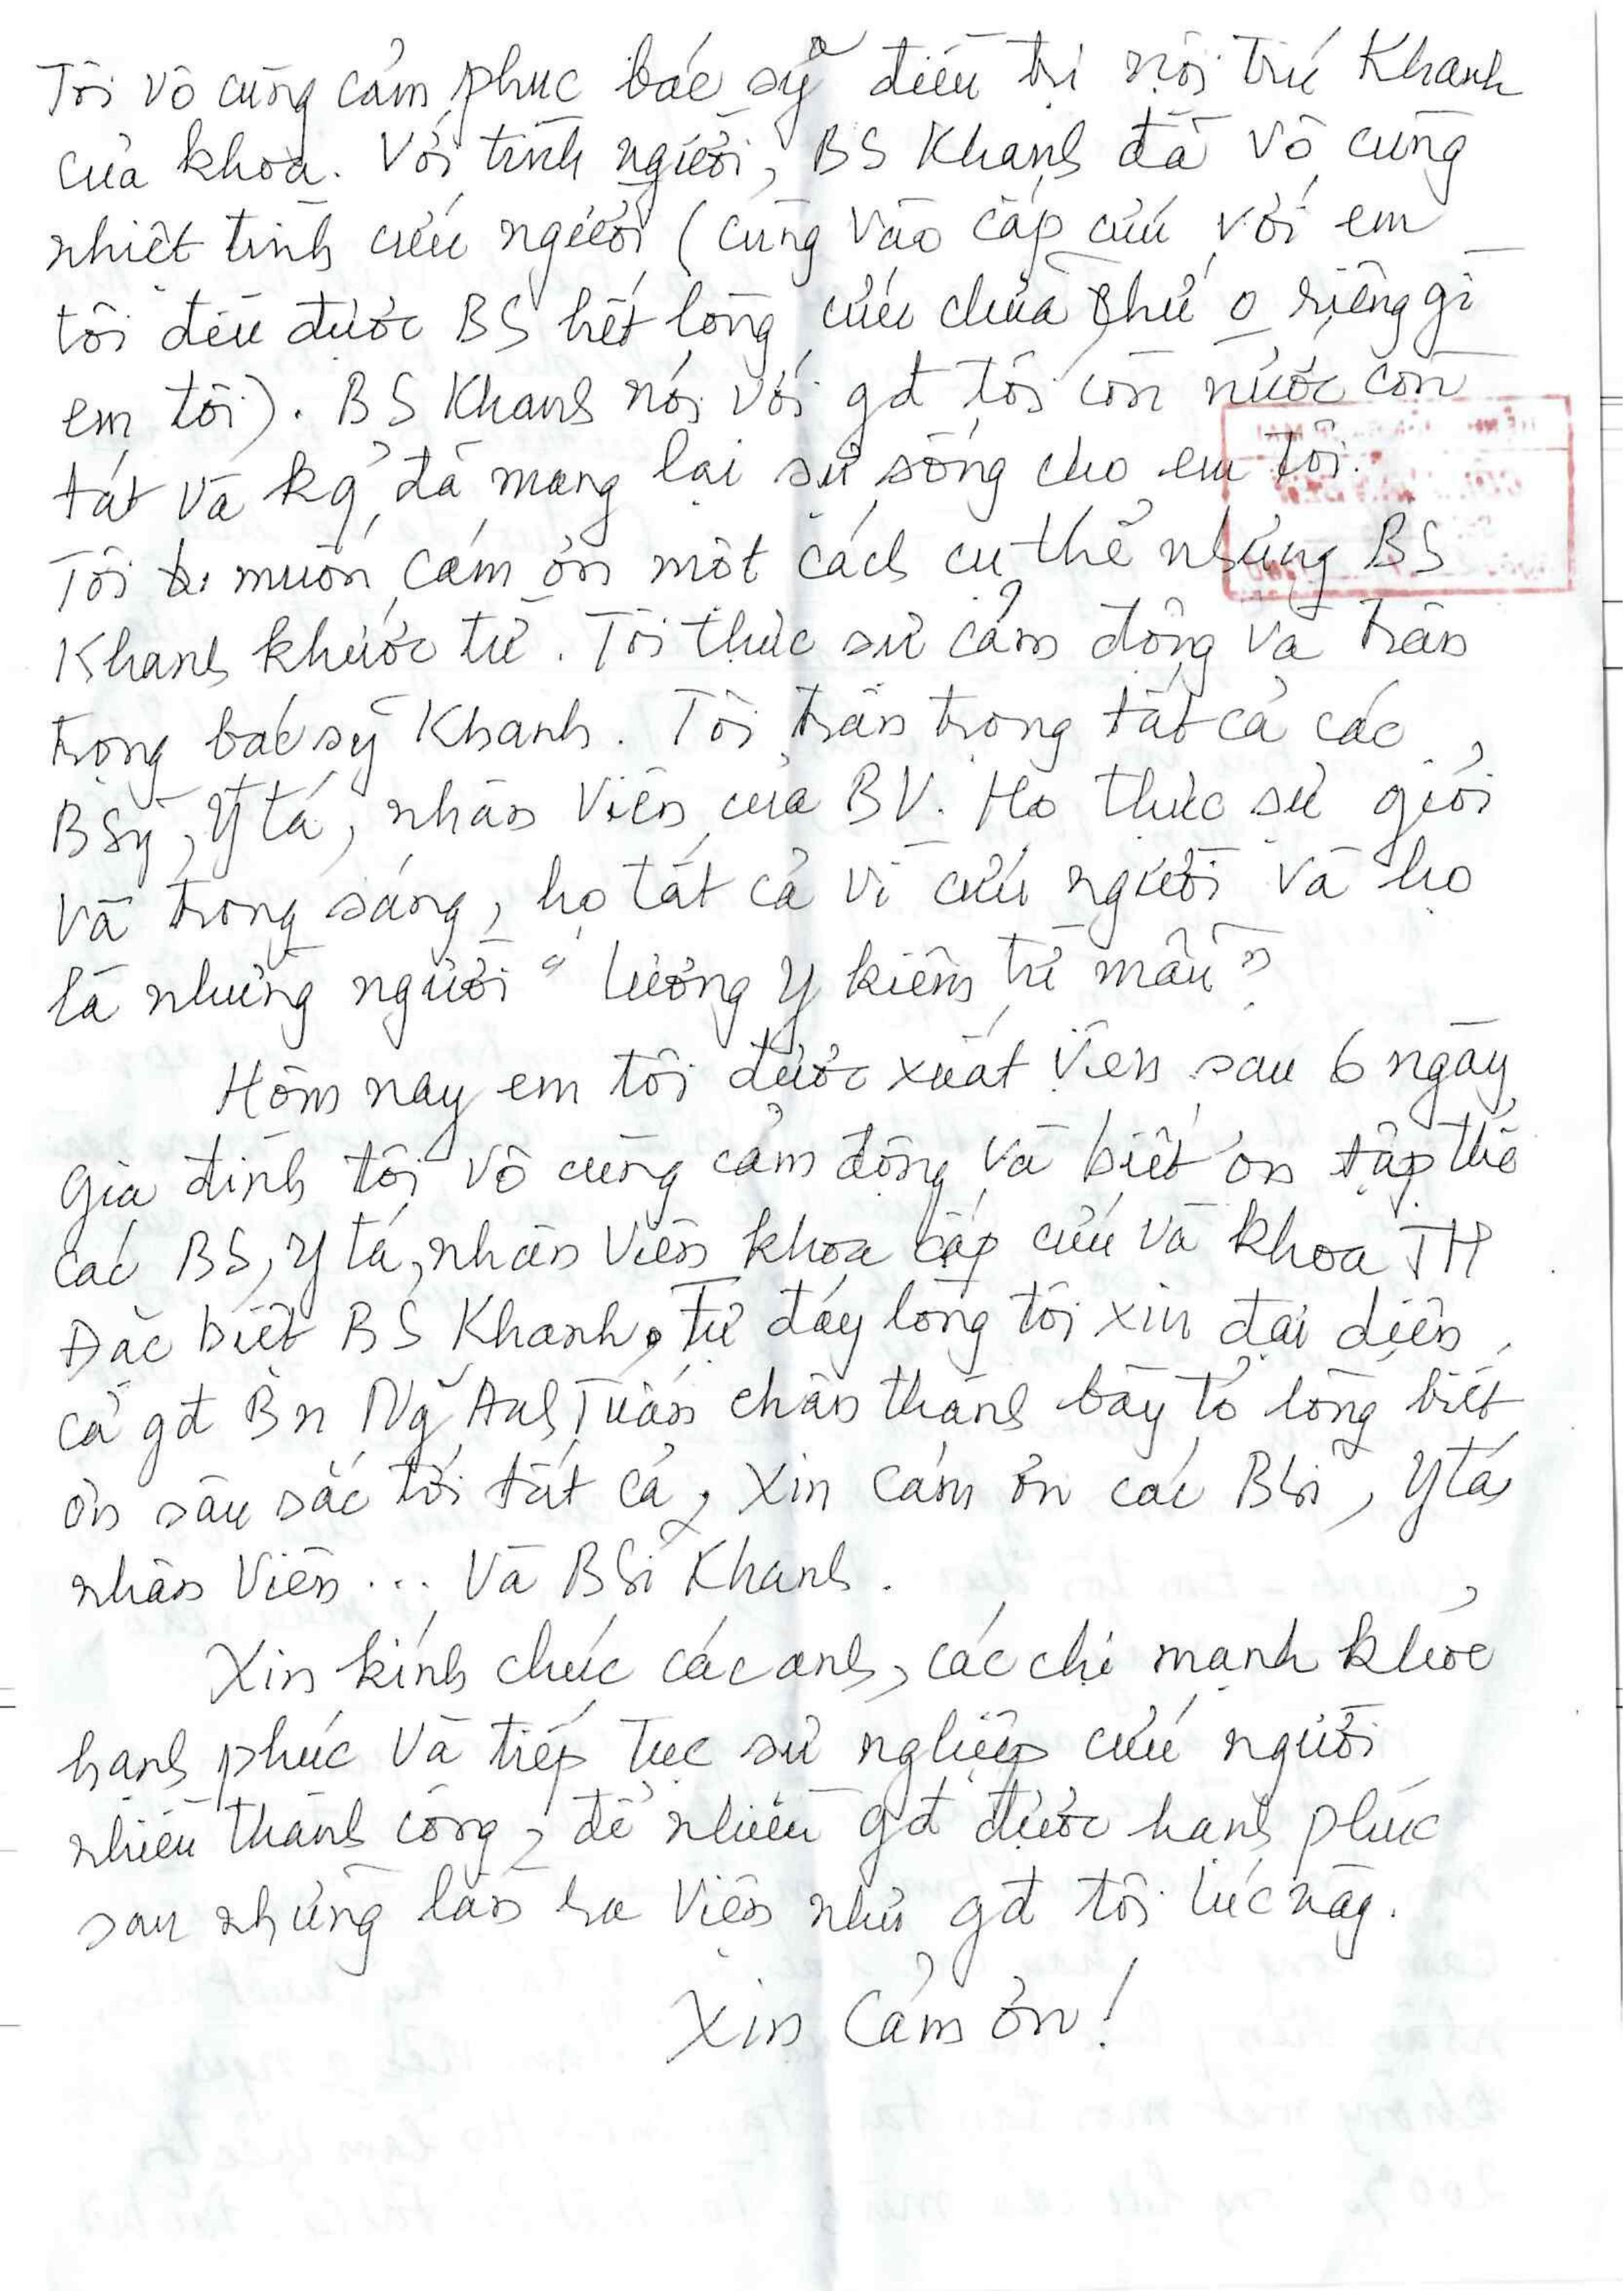 Tôi vô cùng cảm phục bác sỹ điều trị nội trú Khanh
của khoa. Với tình người, BS Khanh đã vô cùng
nhiệt tình cứu người (cùng vào cấp cứu với em
tôi đều được BS hết lòng cứu chữa chứ o riêng gì
em tôi). BS Khanh nói với gđ tôi còn nước còn
tát và kq đã mang lại sự sống cho em tôi.
Tôi muốn cám ơn một cách cụ thể nhưng BS
Khanh khước từ. Tôi thực sự cảm động và trân
trọng bác sỹ Khanh. Tôi trân trọng tất cả các
BSỹ, Y tá, nhân viên của BV. Họ thực sự giỏi
và trong sáng, họ tất cả vì cứu người và họ
là những người "lương y kiêm từ mẫu"
Hôm nay em tôi được xuất viện sau 6 ngày
gia đình tôi vô cùng cảm động và biết ơn tập thể
các BS, Y tá, nhân viên khoa cấp cứu và khoa TH
Đặc biệt BS Khanh. Từ đáy lòng tôi xin đại diện
cả gđ Bn Ng Anh Tuấn chân thành bày tỏ lòng biết
ơn sâu sắc tới tất cả, Xin cám ơn các BSĩ, Y tá
nhân viên ... Và BSĩ Khanh.
Xin kính chúc các anh, các chị mạnh khỏe
hạnh phúc và tiếp tục sự nghiệp cứu người
nhiều thành công, để nhiều gđ được hạnh phúc
sau những lần ra viện như gđ tôi lúc này.
Xin Cảm ơn!